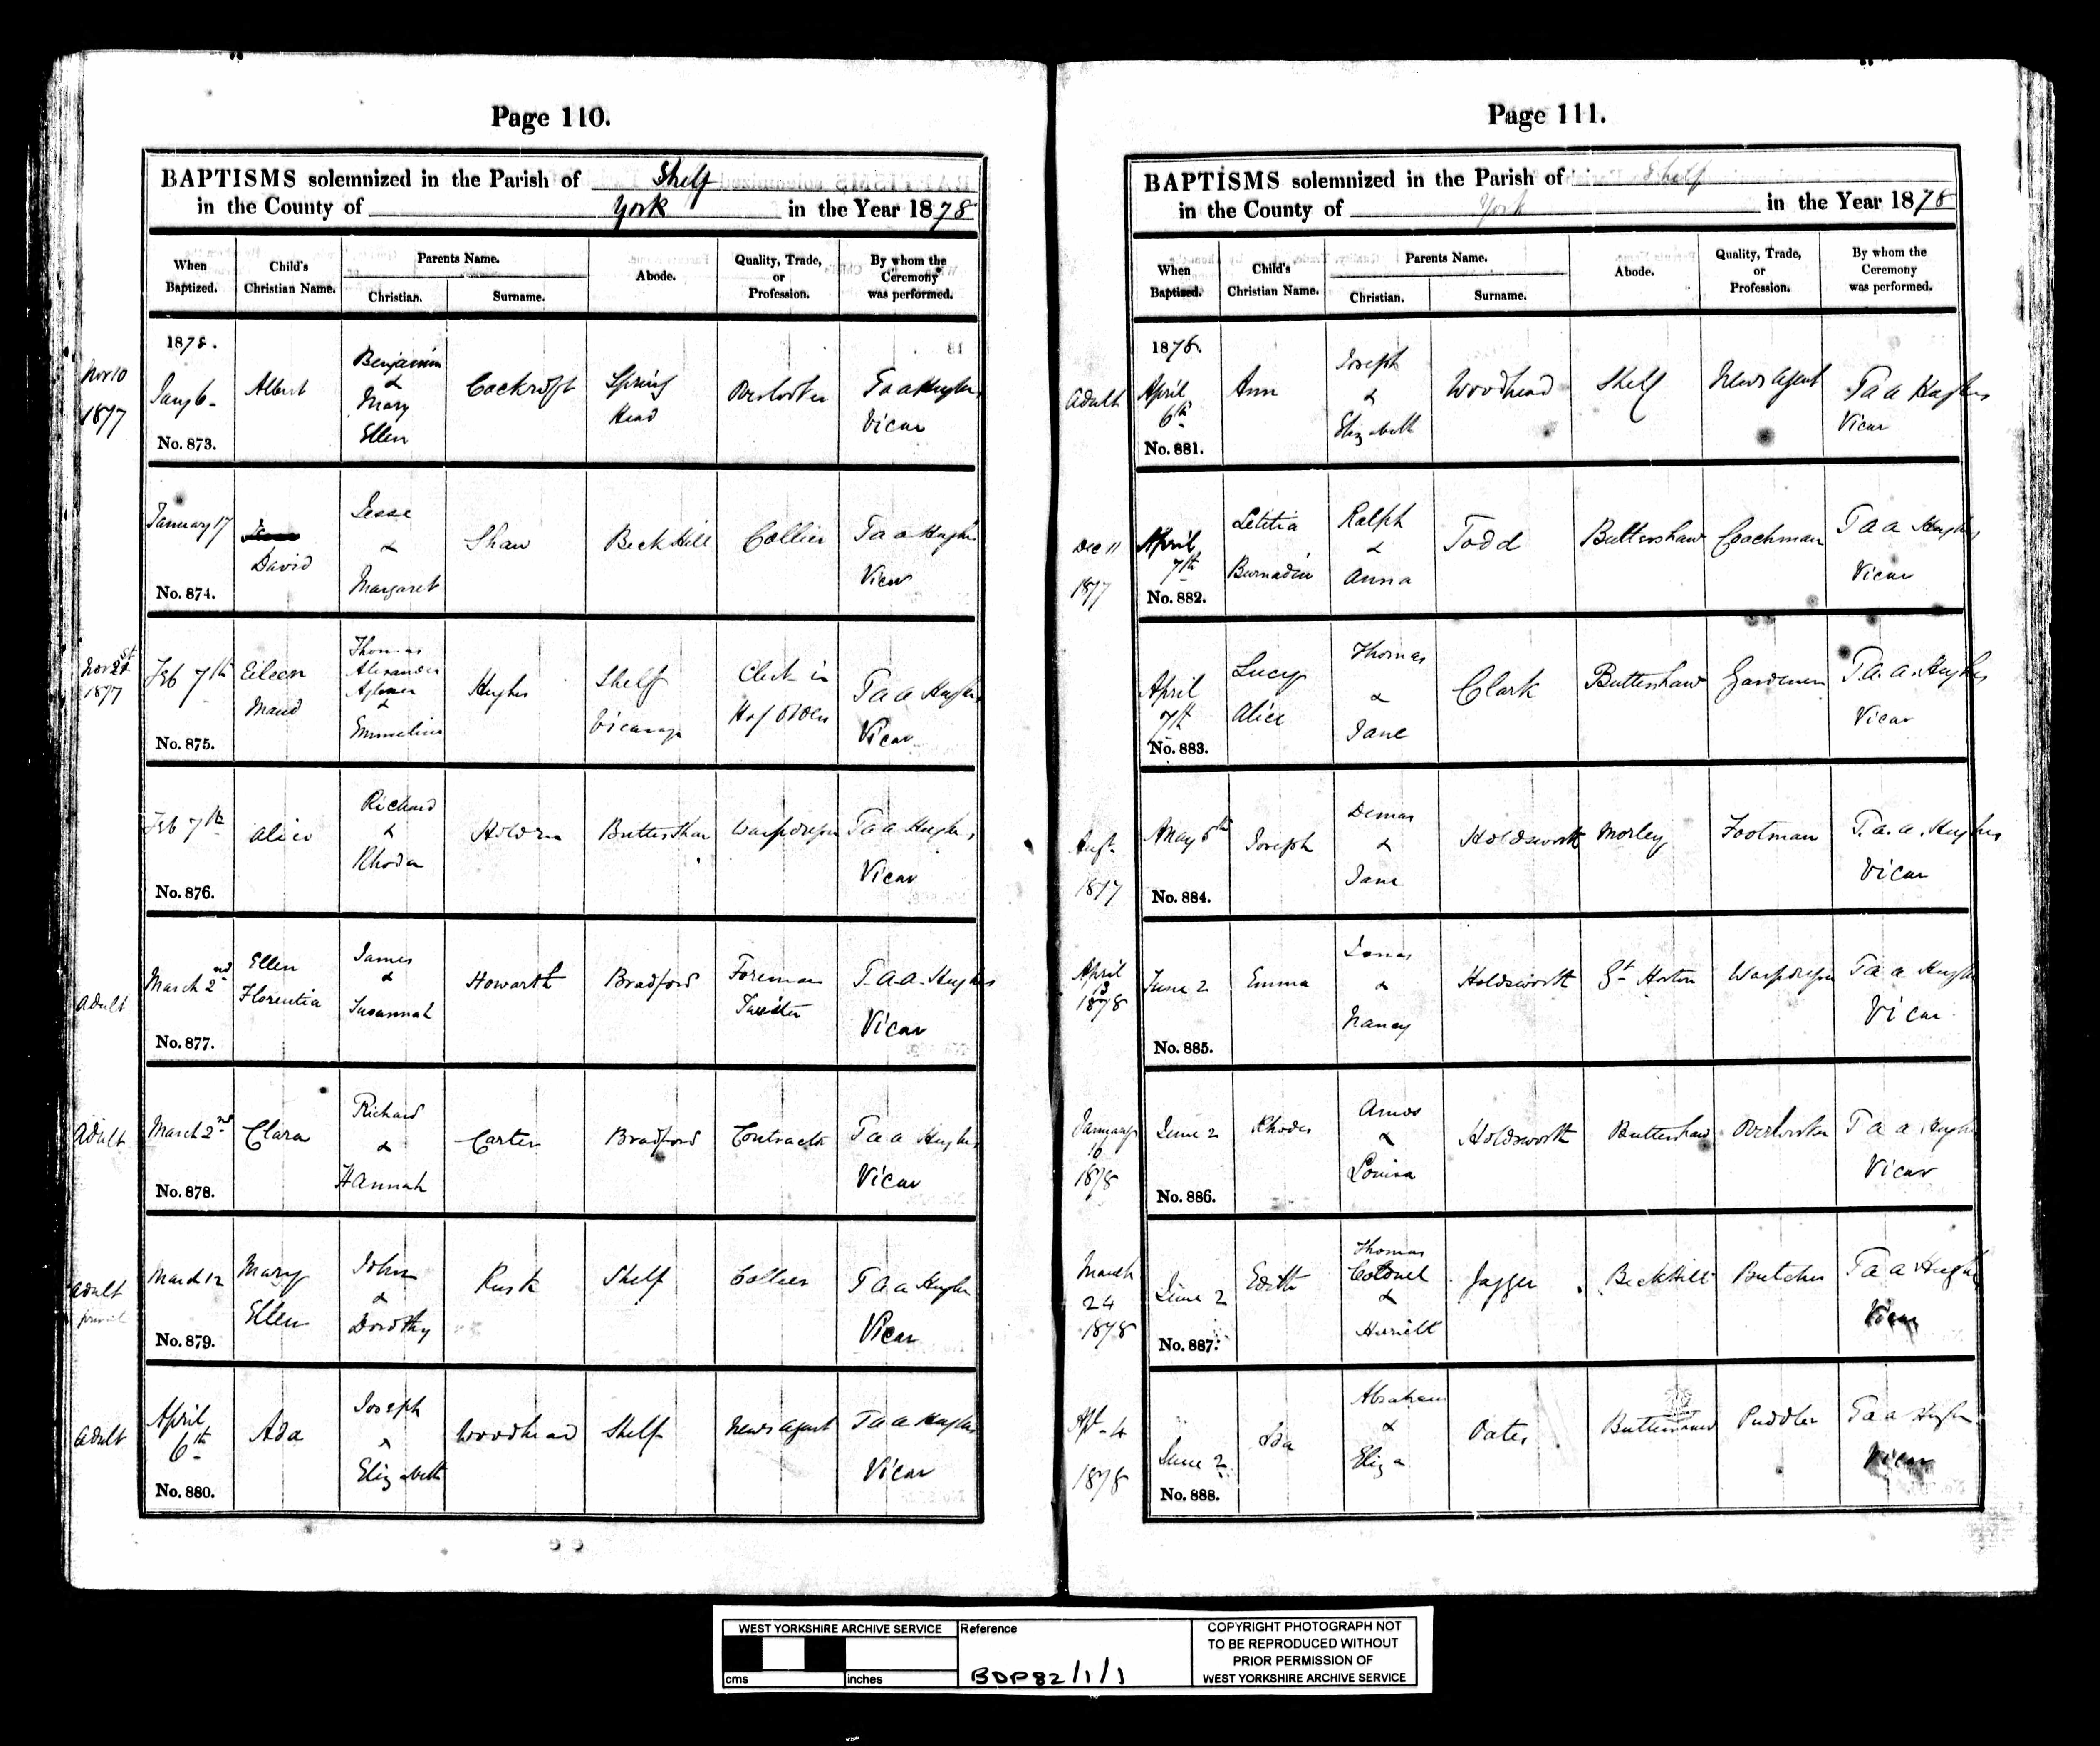 Page 110.
BAPTISMS solemnized in the Parish of Shelf
in the County of York in the Year 1878
When Baptized.
Child's Christian Name.
Parents Name.
Christian.
Surname.
Abode.
Quality, Trade, or Profession.
By whom the Ceremony was performed.
Nov 10
1877
1878.
Jany 6
No. 873.
Albert
Benjamin
&
Mary
Ellen
Cockroft
Spring
Head
Overlooker
T a a Hughes
Vicar
January 17
No. 874.
David
Jesse
&
Margaret
Shaw
Beck Hill
Collier
T a a Hughes
Vicar
Nov 21st
1877
Feb 7th
No. 875.
Eileen
Maud
Thomas
Alexander
&
Emmeline
Hughes
Shelf
Vicarage
Clerk in
Hy Orders
T a a Hughes
Vicar
Feb 7th
No. 876.
Alice
Richard
&
Rhoda
Buttershaw
Warpdresser
T a a Hughes
Vicar
Adult
March 2nd
No. 877.
Ellen
Florentia
James
&
Susannah
Howarth
Bradford
Foreman
Twister
T. a. a. Hughes
Vicar
Adult
March 2nd
No. 878.
Clara
Richard
&
Hannah
Carter
Bradford
Contractor
T a a Hughes
Vicar
Adult
March 12
No. 879.
Mary
Ellen
John
&
Dorothy
Rusk
Shelf
Collier
T a a Hughes
Vicar
Adult
April
6th
No. 880.
Ada
Joseph
&
Elizabeth
Woodhead
Shelf
News agent
T a a Hughes
Vicar
Page 111.
BAPTISMS solemnized in the Parish of Shelf
in the County of York in the Year 1878
When Baptized.
Child's Christian Name.
Parents Name.
Christian.
Surname.
Abode.
Quality, Trade, or Profession.
By whom the Ceremony was performed.
Adult
1878.
April
6th
No. 881.
Ann
Joseph
&
Elizabeth
Woodhead
Shelf
News agent
T a a Hughes
Vicar
Dec 11
1877
April
7th
No. 882.
Letitia
Ralph
&
Anna
Todd
Buttershaw
Coachman
T a a Hughes
Vicar
April
7th
No. 883.
Lucy
Alice
Thomas
&
Jane
Clark
Buttershaw
Gardener
T. a. a. Hughes
Vicar
1877
May 5th
No. 884.
Joseph
Demas
&
Jane
Holdsworth
Morley
Footman
T. a. a. Hughes
Vicar
April
13
1878
June 2
No. 885.
Emma
Jonas
&
Nancy
Holdsworth
Gt Horton
Warpdresser
T a a Hughes
Vicar
January
16
1878
June 2
No. 886.
Rhoda
Amos
&
Louisa
Holdsworth
Buttershaw
Overlooker
T a a Hughes
Vicar
March
24
1878
June 2
No. 887.
Edith
Thomas
Colonel
&
Harriett
Jagger
Beck Hill
Butcher
T a a Hughes
Vicar
Apl - 4
1878
June 2
No. 888.
Ida
Abraham
&
Eliza
Oates
Buttershaw
Puddler
T a a Hughes
Vicar
WEST YORKSHIRE ARCHIVE SERVICE
cms
inches
Reference
BDP82/1/1
COPYRIGHT PHOTOGRAPH NOT
TO BE REPRODUCED WITHOUT
PRIOR PERMISSION OF
WEST YORKSHIRE ARCHIVE SERVICE